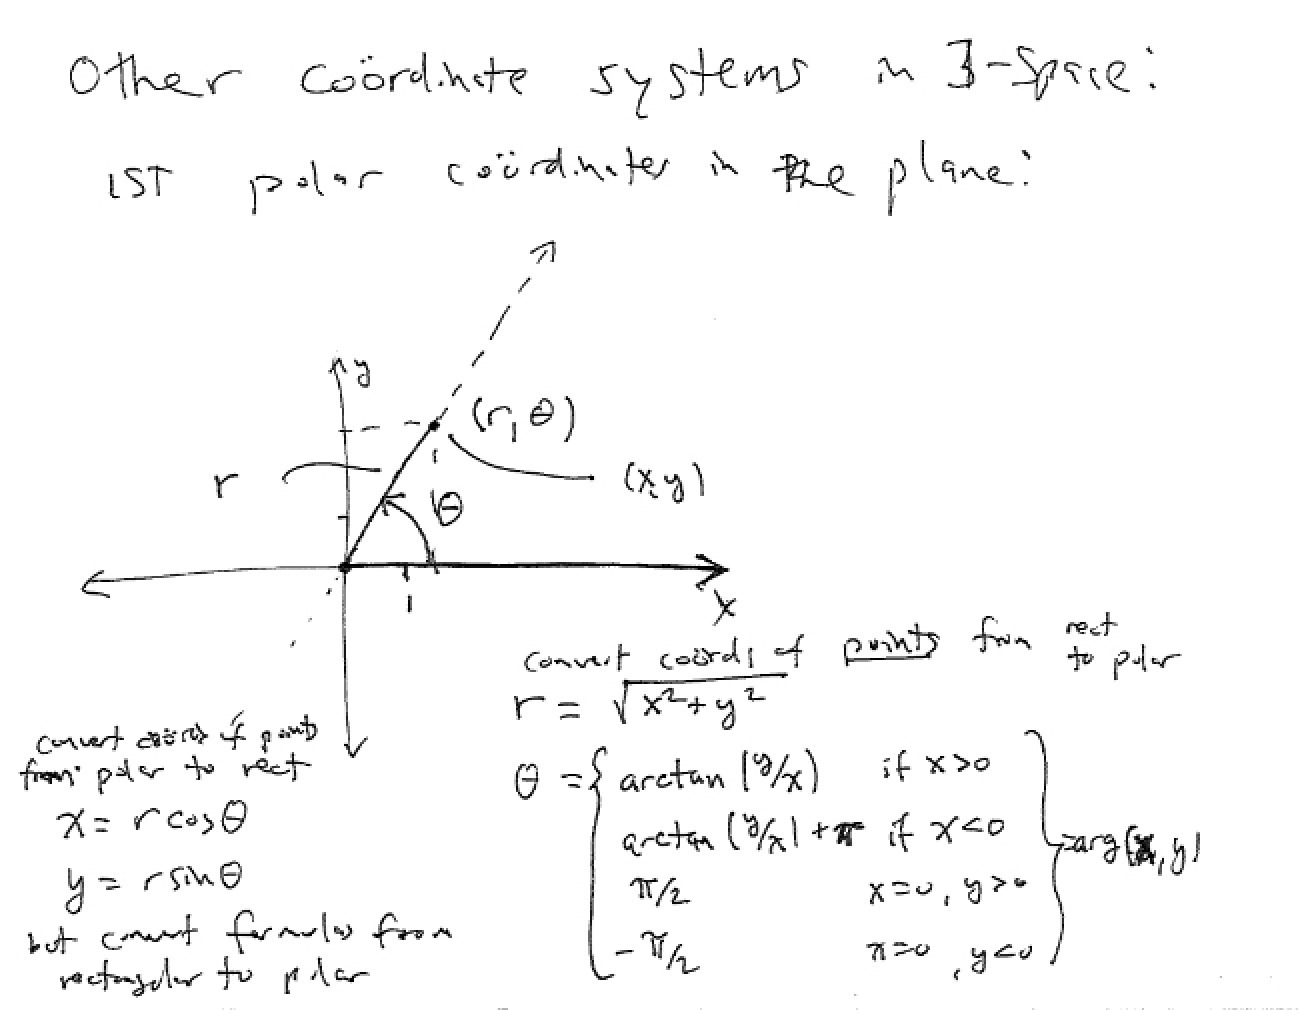 Other coördinate systems in 3-Space:
1ST polar coördinates in the plane:
y
(r, θ)
r
(x,y)
θ
1
x
convert coörds of points from rect to polar
r = √x²+y²
θ = { arctan (y/x) if x>0
arctan (y/x) + π if x<0
π/2 x=0, y>0
-π/2 x=0, y<0
} =arg(x,y)
convert coörds of points
from polar to rect
x = r cosθ
y = r sinθ
but convert formulas from
rectangular to polar